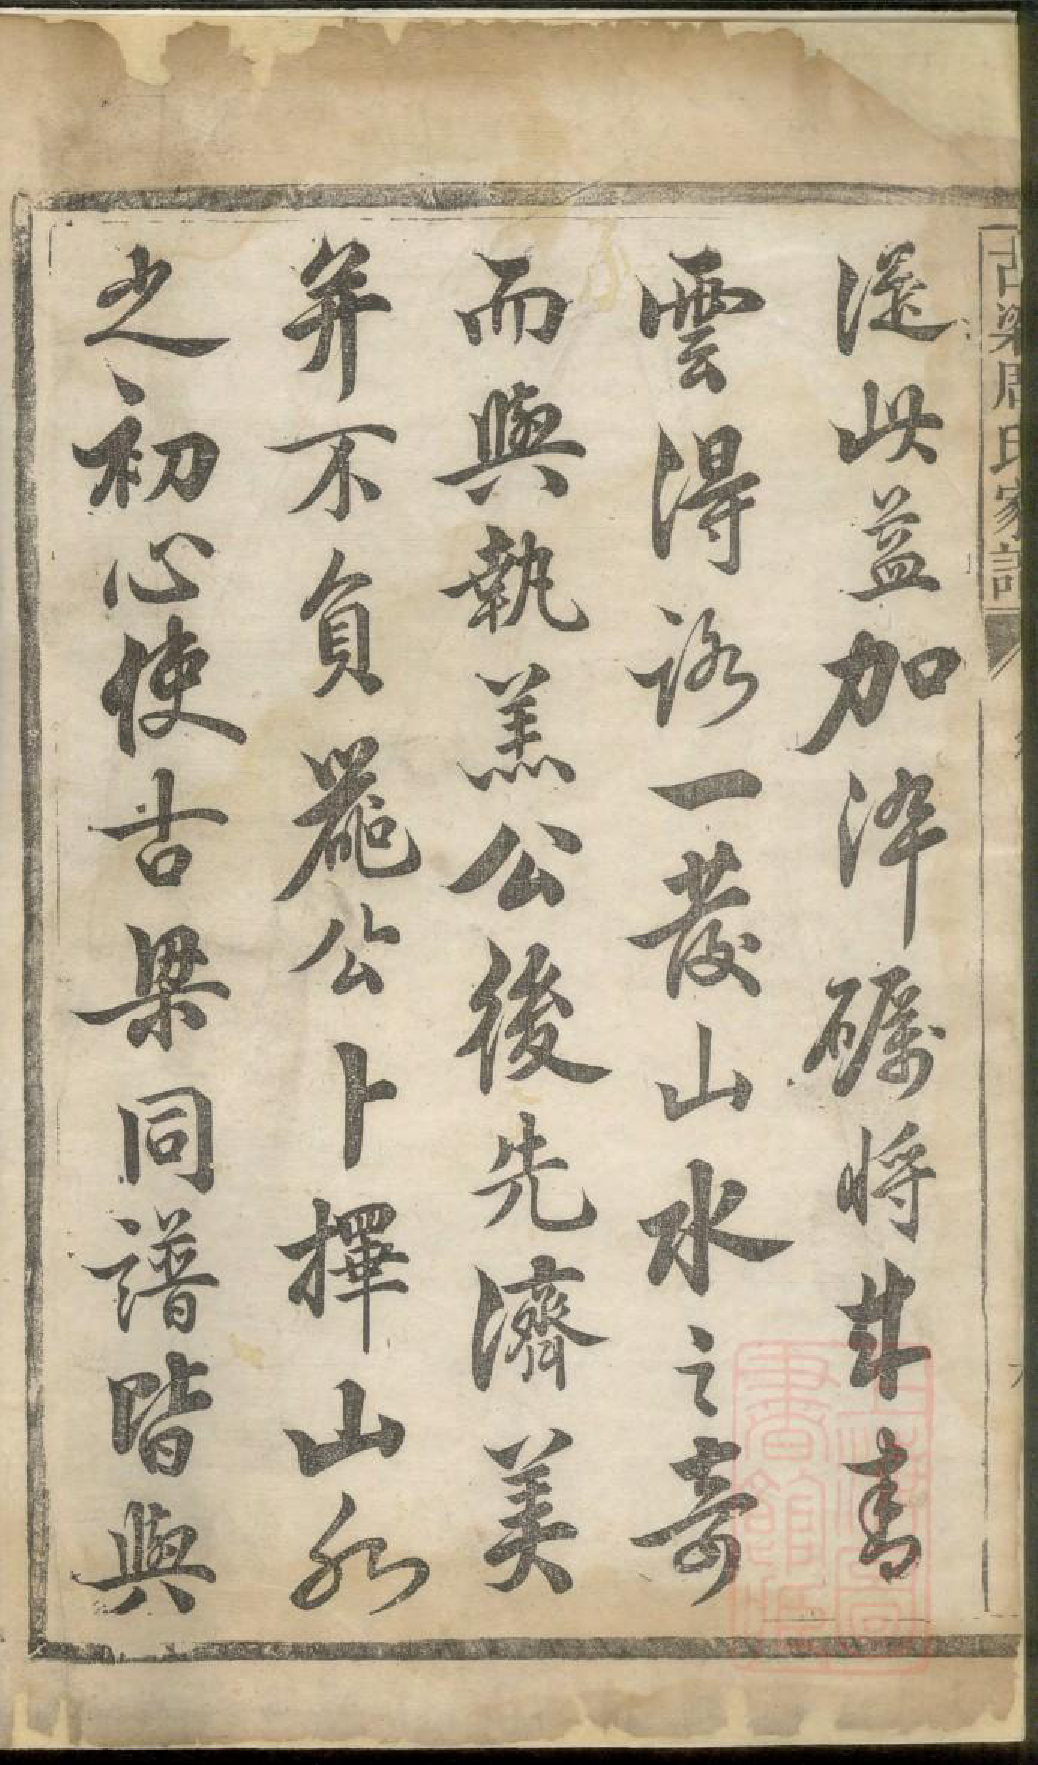 古梁周氏家譜
從此益加淬礪將來青
雲得路一發山水之奇
而與執羔公後先濟美
并不負羆公卜擇山水
之初心使古梁同譜皆與